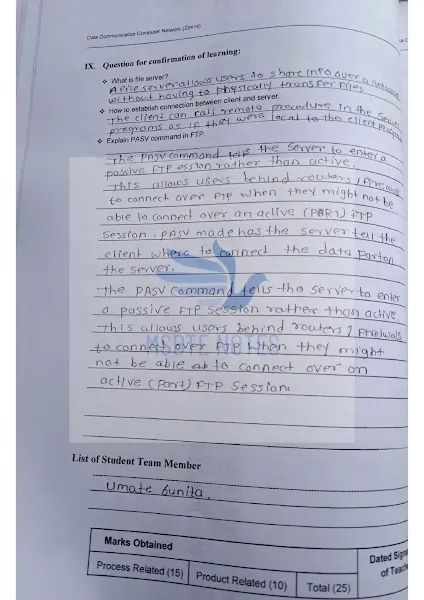 Data Communication Computer Network (22414)
IX. Question for confirmation of learning:
❖ What is file server?
A file server allows users to share info over a network
without having to physically transfer files.
❖ How to establish connection between client and server.
The client can call remote procedure in the Server
programs as if they were local to the client
❖ Explain PASV command in FTP.
The PASV command tells the Server to enter a
passive FTP ession rather than active.
This allows users behind routers /
to connect over FTP when they might not be
able to connect over an active (PART) FTP
Session. PASV made has the server tell the
client where to connect the data parton
the server.
the PASV command tells the server to enter
a passive FTP session rather than active.
this allows users behind routers / firelwals
to connect over FTP when they might
not be able to connect over an
active (part) FTP Session.
MSBTE NOTES
List of Student Team Member
Umate Sunita.
Marks Obtained
Process Related (15) Product Related (10) Total (25)
Dated
of